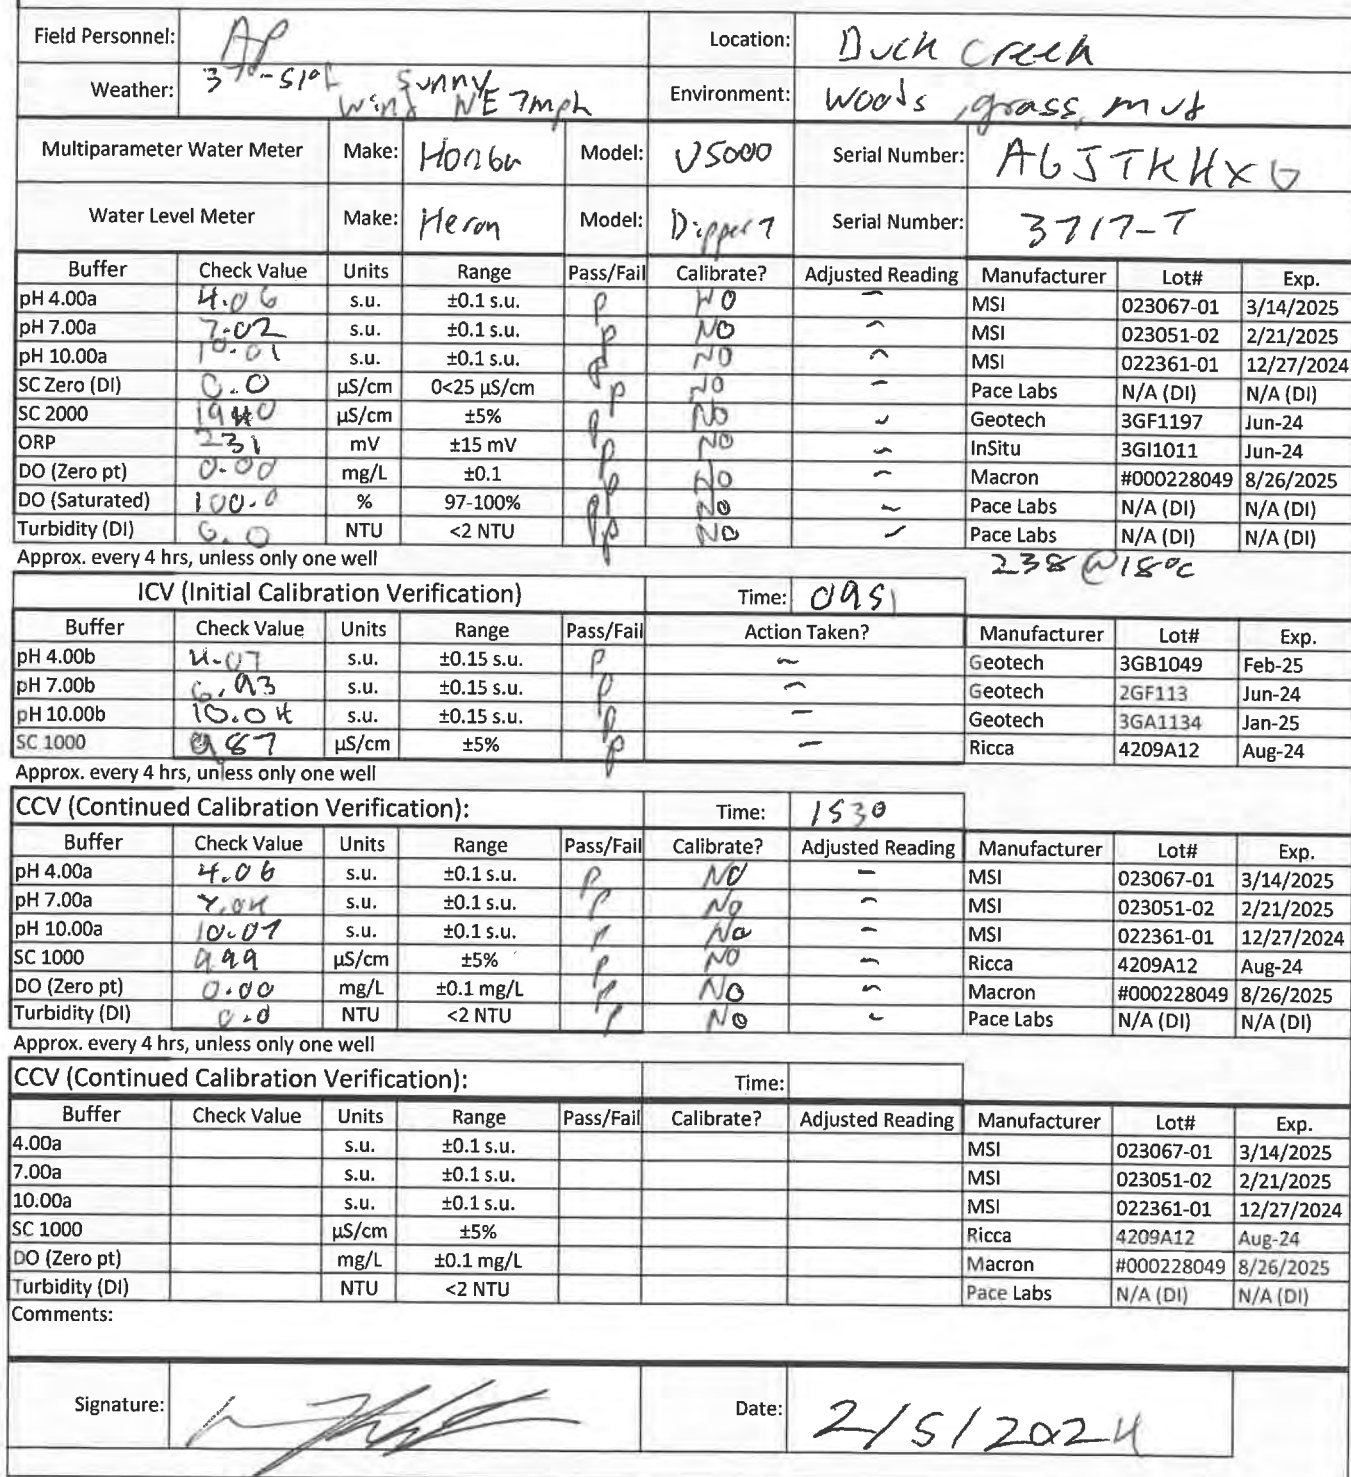 Field Personnel: AP Location: Duck Creek
Weather: 37°-51°F Sunny Wind NE 7mph Environment: Woods, grass, mud
Multiparameter Water Meter Make: Horiba Model: U5000 Serial Number: AGJTKHXG
Water Level Meter Make: Heron Model: Dipper T Serial Number: 3717-T
Buffer Check Value Units Range Pass/Fail Calibrate? Adjusted Reading Manufacturer Lot# Exp.
pH 4.00a 4.06 s.u. ±0.1 s.u. P NO – MSI 023067-01 3/14/2025
pH 7.00a 7.02 s.u. ±0.1 s.u. P NO – MSI 023051-02 2/21/2025
pH 10.00a 10.01 s.u. ±0.1 s.u. P NO – MSI 022361-01 12/27/2024
SC Zero (DI) 0.0 µS/cm 0<25 µS/cm P NO – Pace Labs N/A (DI) N/A (DI)
SC 2000 1940 µS/cm ±5% P NO – Geotech 3GF1197 Jun-24
ORP 231 mV ±15 mV P NO – InSitu 3GI1011 Jun-24
DO (Zero pt) 0.00 mg/L ±0.1 P NO – Macron #000228049 8/26/2025
DO (Saturated) 100.0 % 97-100% P NO – Pace Labs N/A (DI) N/A (DI)
Turbidity (DI) 0.0 NTU <2 NTU P NO – Pace Labs N/A (DI) N/A (DI)
Approx. every 4 hrs, unless only one well 238@18°C
ICV (Initial Calibration Verification) Time: 0951
Buffer Check Value Units Range Pass/Fail Action Taken? Manufacturer Lot# Exp.
pH 4.00b 4.07 s.u. ±0.15 s.u. P – Geotech 3GB1049 Feb-25
pH 7.00b 6.93 s.u. ±0.15 s.u. P – Geotech 2GF113 Jun-24
pH 10.00b 10.04 s.u. ±0.15 s.u. P – Geotech 3GA1134 Jan-25
SC 1000 987 µS/cm ±5% P – Ricca 4209A12 Aug-24
Approx. every 4 hrs, unless only one well
CCV (Continued Calibration Verification): Time: 1530
Buffer Check Value Units Range Pass/Fail Calibrate? Adjusted Reading Manufacturer Lot# Exp.
pH 4.00a 4.06 s.u. ±0.1 s.u. P NO – MSI 023067-01 3/14/2025
pH 7.00a 7.04 s.u. ±0.1 s.u. P No – MSI 023051-02 2/21/2025
pH 10.00a 10.07 s.u. ±0.1 s.u. P No – MSI 022361-01 12/27/2024
SC 1000 999 µS/cm ±5% P NO – Ricca 4209A12 Aug-24
DO (Zero pt) 0.00 mg/L ±0.1 mg/L P NO – Macron #000228049 8/26/2025
Turbidity (DI) 0.0 NTU <2 NTU P NO – Pace Labs N/A (DI) N/A (DI)
Approx. every 4 hrs, unless only one well
CCV (Continued Calibration Verification): Time:
Buffer Check Value Units Range Pass/Fail Calibrate? Adjusted Reading Manufacturer Lot# Exp.
4.00a s.u. ±0.1 s.u. MSI 023067-01 3/14/2025
7.00a s.u. ±0.1 s.u. MSI 023051-02 2/21/2025
10.00a s.u. ±0.1 s.u. MSI 022361-01 12/27/2024
SC 1000 µS/cm ±5% Ricca 4209A12 Aug-24
DO (Zero pt) mg/L ±0.1 mg/L Macron #000228049 8/26/2025
Turbidity (DI) NTU <2 NTU Pace Labs N/A (DI) N/A (DI)
Comments:
Signature: Date: 2/5/2024